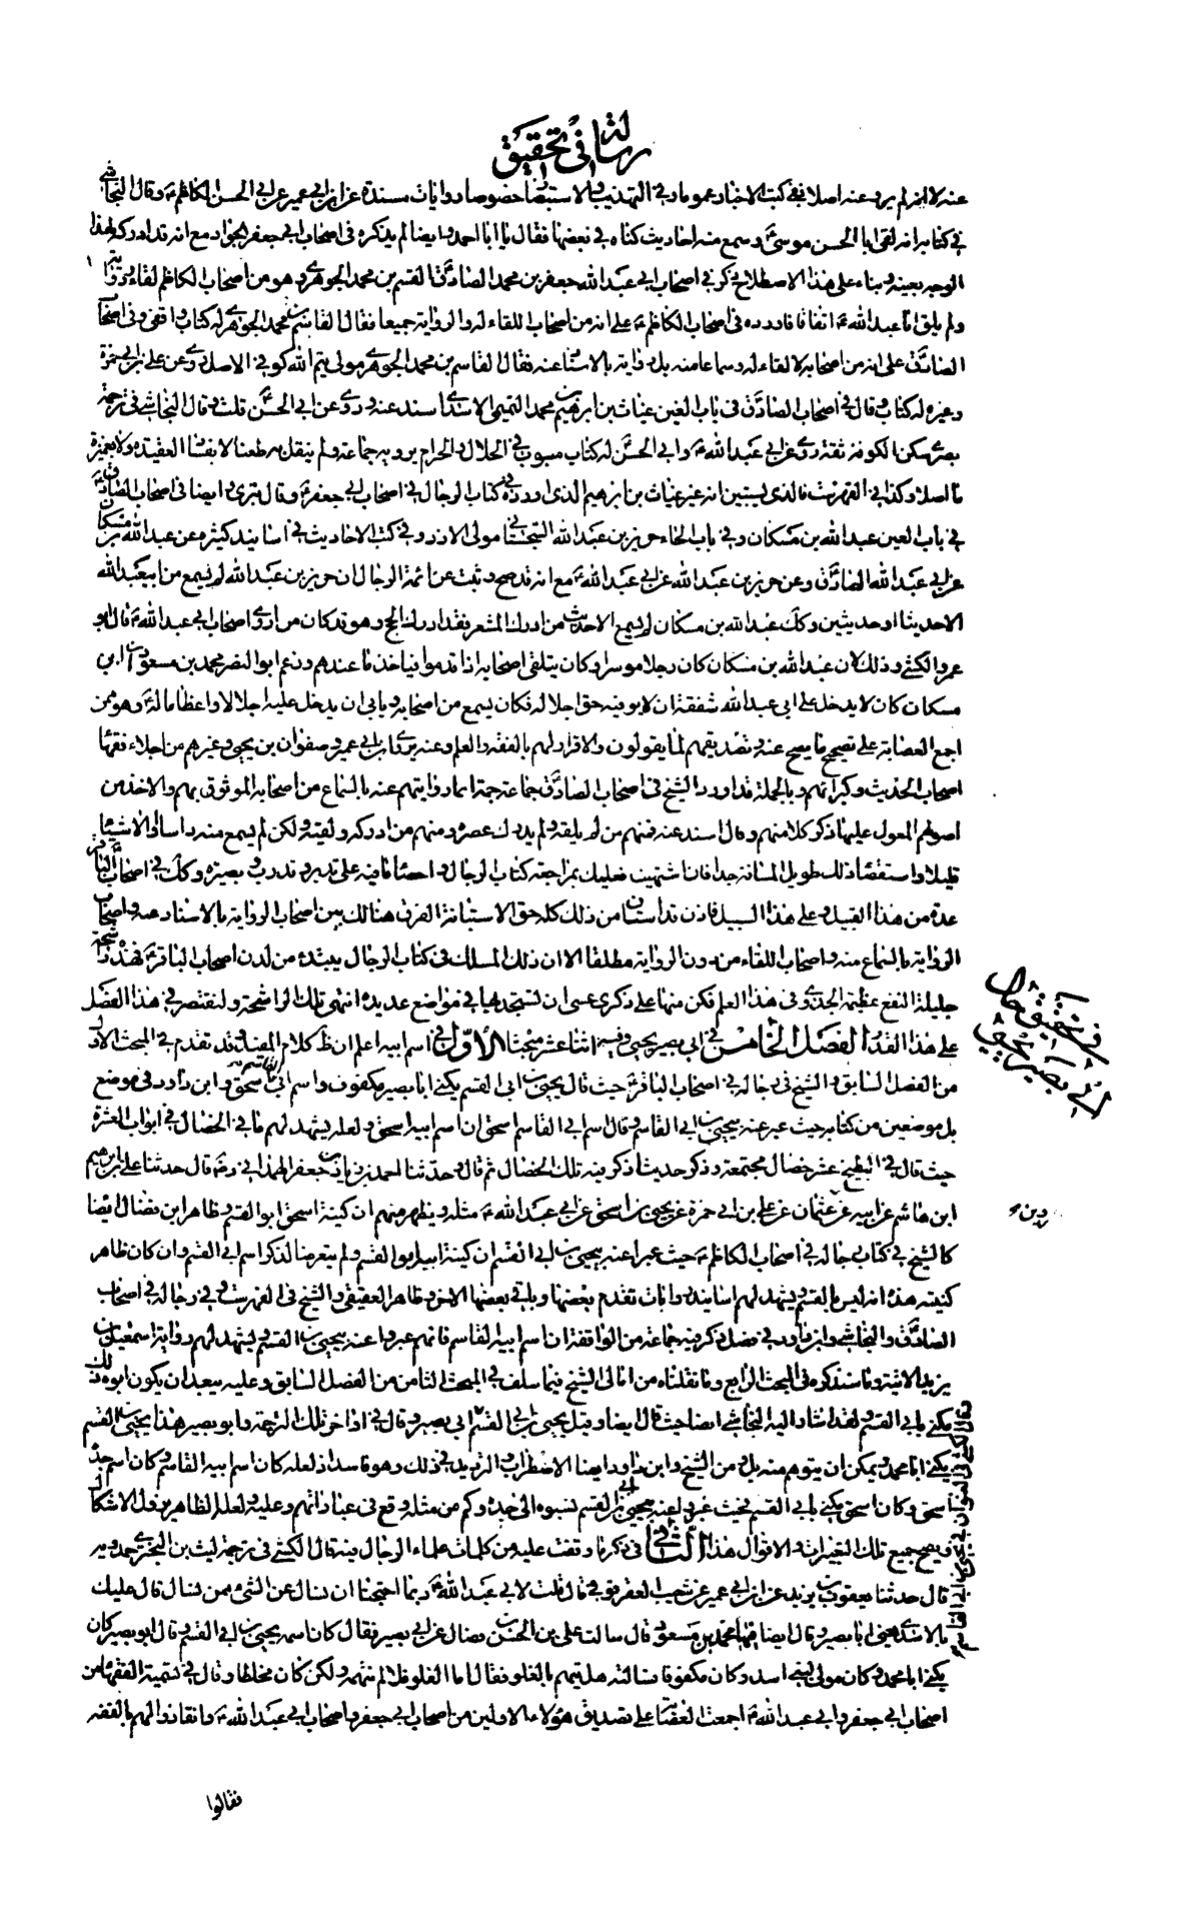 رسالة في تحقيق
عنه لا انه لم يرو عنه اصلا ففي كتب الاخبار عموما وفي التهذيب والاستبصار خصوصا روايات مسندة عن ابن ابي عمير عن ابي الحسن الكاظم ع وقال النجاشي
في كتابه انه لقي ابا الحسن موسى ع وسمع منه احاديث كناه في بعضها فقال يا ابا احمد وايضا لم يذكره في اصحاب ابي جعفر الجواد مع انه قد ادركه ولهذا
الوجه بعينه وبناء على هذا الاصطلاح ذكر في اصحاب ابي عبد الله جعفر بن محمد الصادق ع القسم بن محمد الجوهري وهو من اصحاب الكاظم لقاء ورواية
ولم يلق ابا عبد الله ع اتفاقا فاورده في اصحاب الكاظم ع على انه من اصحاب اللقاء له والرواية جميعا فقال القاسم بن محمد الجوهري له كتاب واقفي وفي اصحاب
الصادق ع على انه من اصحابه لا لقاء له وسماعا منه بل رواية بالاسناد عنه فقال القاسم بن محمد الجوهري مولى تيم الله كوفي الاصل روى عن علي بن ابي حمزة
وغيره له كتاب وقال في اصحاب الصادق ع في باب الغين غياث بن ابراهيم بن محمد التميمي الاسدي اسند عنه وروى عن ابي الحسن ع قلت وقال النجاشي في ترجمة
بصري سكن الكوفة ثقة روى عن ابي عبد الله ع وابي الحسن ع له كتاب مبوب في الحلال والحرام يرويه جماعة ولم ينقل طعنا لا بفساد العقيدة ولا بغيره
اصلا وكذا في الفهرست فالذي يستبين انه غير غياث بن ابراهيم الذي اورده في كتاب الرجال في اصحاب ابي جعفر ع وقال بتري وايضا في اصحاب الصادق ع
في باب العين عبد الله بن مسكان وفي باب الحاء حريز بن عبد الله السجستاني مولى الازد وفي كتب الاحاديث في اسانيد كثيرة عن عبد الله بن مسكان
عن ابي عبد الله الصادق ع وعن حريز بن عبد الله عن ابي عبد الله ع مع انه قد صح وثبت عن ائمة الرجال ان حريز بن عبد الله لم يسمع من ابي عبد الله
الا حديثا او حديثين وكذلك عبد الله بن مسكان لم يسمع الا حديث من ادرك المشعر فقد ادرك الحج وهو قد كان من اروى اصحاب ابي عبد الله ع قال ابو
عمرو الكشي وذلك لان عبد الله بن مسكان كان رجلا موسرا وكان يتلقى اصحابه اذا قدموا فياخذ ما عندهم وزعم ابو النضر محمد بن مسعود ان ابن
مسكان كان لا يدخل على ابي عبد الله شفقة ان لا يوفيه حق اجلاله فكان يسمع من اصحابه ويابى ان يدخل عليه اجلالا واعظاما له ع وهو ممن
اجمع العصابة على تصحيح ما يصح عنه وتصديقهم لما يقولون والاقرار لهم بالفقه والعلم وعنه يروي ابن ابي عمير وصفوان بن يحيى وغيرهم من اجلاء فقهاء
اصحاب الحديث وكبرائهم وبالجملة قد اورد الشيخ في اصحاب الصادق ع جماعة جمة انما روايتهم عنه بالسماع من اصحابه الموثوق بهم والاخذ من
اصولهم المعول عليها ذكر كلا منهم وقال اسند عنه فمنهم من لم يلقه ولم يدرك عصره ومنهم من ادركه ولقيه ولكن لم يسمع منه راسا او الا شيئا
قليلا واستقصاء ذلك طويل المسافة جدا فان اشتهيت فعليك بمراجعة كتاب الرجال واحصاء ما فيه على تدبر وتدرب وبصيرة وكذلك في اصحاب الباقر ع
عدة من هذا القبيل وعلى هذا السبيل فاذن قد استبان من ذلك كله حق الاستبانة الفرق هنالك بين اصحاب الرواية بالاسناد عنه واصحاب
الرواية بالسماع منه واصحاب اللقاء من دون الرواية مطلقا الا ان ذلك المسلك في كتاب الرجال يبتدء من لدن اصحاب الباقر ع فهذه راشحة
جليلة النفع عظيمة الجدوى في هذا العلم فكن منها على ذكرى عسى ان تستجديها في مواضع عديدة انتهى تلك الراشحة ولنقتصر في هذا الفصل
على هذا القدر الفصل الخامس في ابي بصير يحيى وفيه اثنا عشر مبحثا الأول في اسم ابيه اعلم ان ظ كلام المفيد قد تقدم في المبحث الاول
من الفصل السابق والشيخ في رجاله في اصحاب الباقر ع حيث قال يحيى بن ابي القسم يكنى ابا بصير مكفوف واسم ابي القاسم اسحق وابن داود في موضع
بل موضعين من كتابه حيث عبر عنه بيحيى بن ابي القاسم وقال اسم ابي القاسم اسحق ان اسم ابيه اسحق ولعله يشهد لهم ما في الخصال في ابواب العشرة
حيث قال في البطيخ عشر خصال مجتمعة وذكر حديثا ذكر فيه تلك الخصال ثم قال وحدثنا احمد بن زياد بن جعفر الهمداني رض قال حدثنا علي بن ابراهيم
ابن هاشم عن ابيه عن عثمان عن علي بن ابي حمزة عن يحيى بن اسحق عن ابي عبد الله ع مثله ويظهر منهم ان كنية اسحق ابو القسم وظاهر ابن فضال ايضا
كالشيخ في كتاب رجاله في اصحاب الكاظم ع حيث عبرا عنه بيحيى بن ابي القسم ان كنية ابيه ابو القسم ولم يتعرضا لذكر اسم ابي القسم وان كان ظاهر
كنيته هذه انه ليس بالقسم ويشهد لهم اسانيد روايات تقدم بعضها وياتي بعضها الاخر وظاهر العقيقي والشيخ في الفهرست وفي رجاله في اصحاب
الصادق ع والنجاشي وابن داود في فصل ذكر فيه جماعة من الواقفة ان اسم ابيه القاسم فانهم عبروا عنه بيحيى بن القسم ويشهد لهم رواية اسمعيل بن
يزيد الاتية وما سنذكره في المبحث الرابع وما نقلناه من امالي الشيخ فيما سلف في المبحث الثامن من الفصل السابق وعليه يبعد ان يكون ابوه ذلك
يكنى بابي القسم ولقد اشار اليه النجاشي ايضا حيث قال ايضا وقيل يحيى بن ابي القسم ابي بصير وقال في اواخر تلك الترجمة وابو بصير هذا يحيى بن القسم
يكنى ابا محمد ويمكن ان يتوهم منه بل ومن الشيخ وابن داود ايضا الاضطراب والترديد في ذلك وهو فاسد اذ لعله كان اسم ابيه القاسم وكان اسم جده
اسحق وكان اسحق يكنى بابي القسم فحيث عبروا عنه بيحيى بن ابي القسم نسبوه الى جده وكم من مثله وقع في عباراتهم وعليه ولعله الظاهر يزول الاشكال
ويصح جميع تلك التعبيرات والاقوال هذا الثاني في ذكر ما وقفت عليه من كلمات علماء الرجال فيه قال الكشي في ترجمة ليث بن البختري حمدويه
قال حدثنا يعقوب بن يزيد عن ابن ابي عمير عن شعيب العقرقوفي قال قلت لابي عبد الله ع ربما احتجنا ان نسال عن الشيء فمن نسال قال عليك
بالاسدي يعني ابا بصير وقال ايضا فيها محمد بن مسعود قال سالت علي بن الحسن بن فضال عن ابي بصير فقال كان اسمه يحيى بن ابي القسم وقال ابو بصير كان
يكنى ابا محمد وكان مولى لبني اسد وكان مكفوفا سالته هل يتهم بالغلو فقال اما الغلو فلا لم يتهم ولكن كان مخلطا وقال في تسمية الفقهاء من
اصحاب ابي جعفر وابي عبد الله ع اجمعت العصابة على تصديق هؤلاء الاولين من اصحاب ابي جعفر واصحاب ابي عبد الله ع وانقادوا لهم بالفقه
فقالوا
في تحقيق حال
ابي بصير يحيى